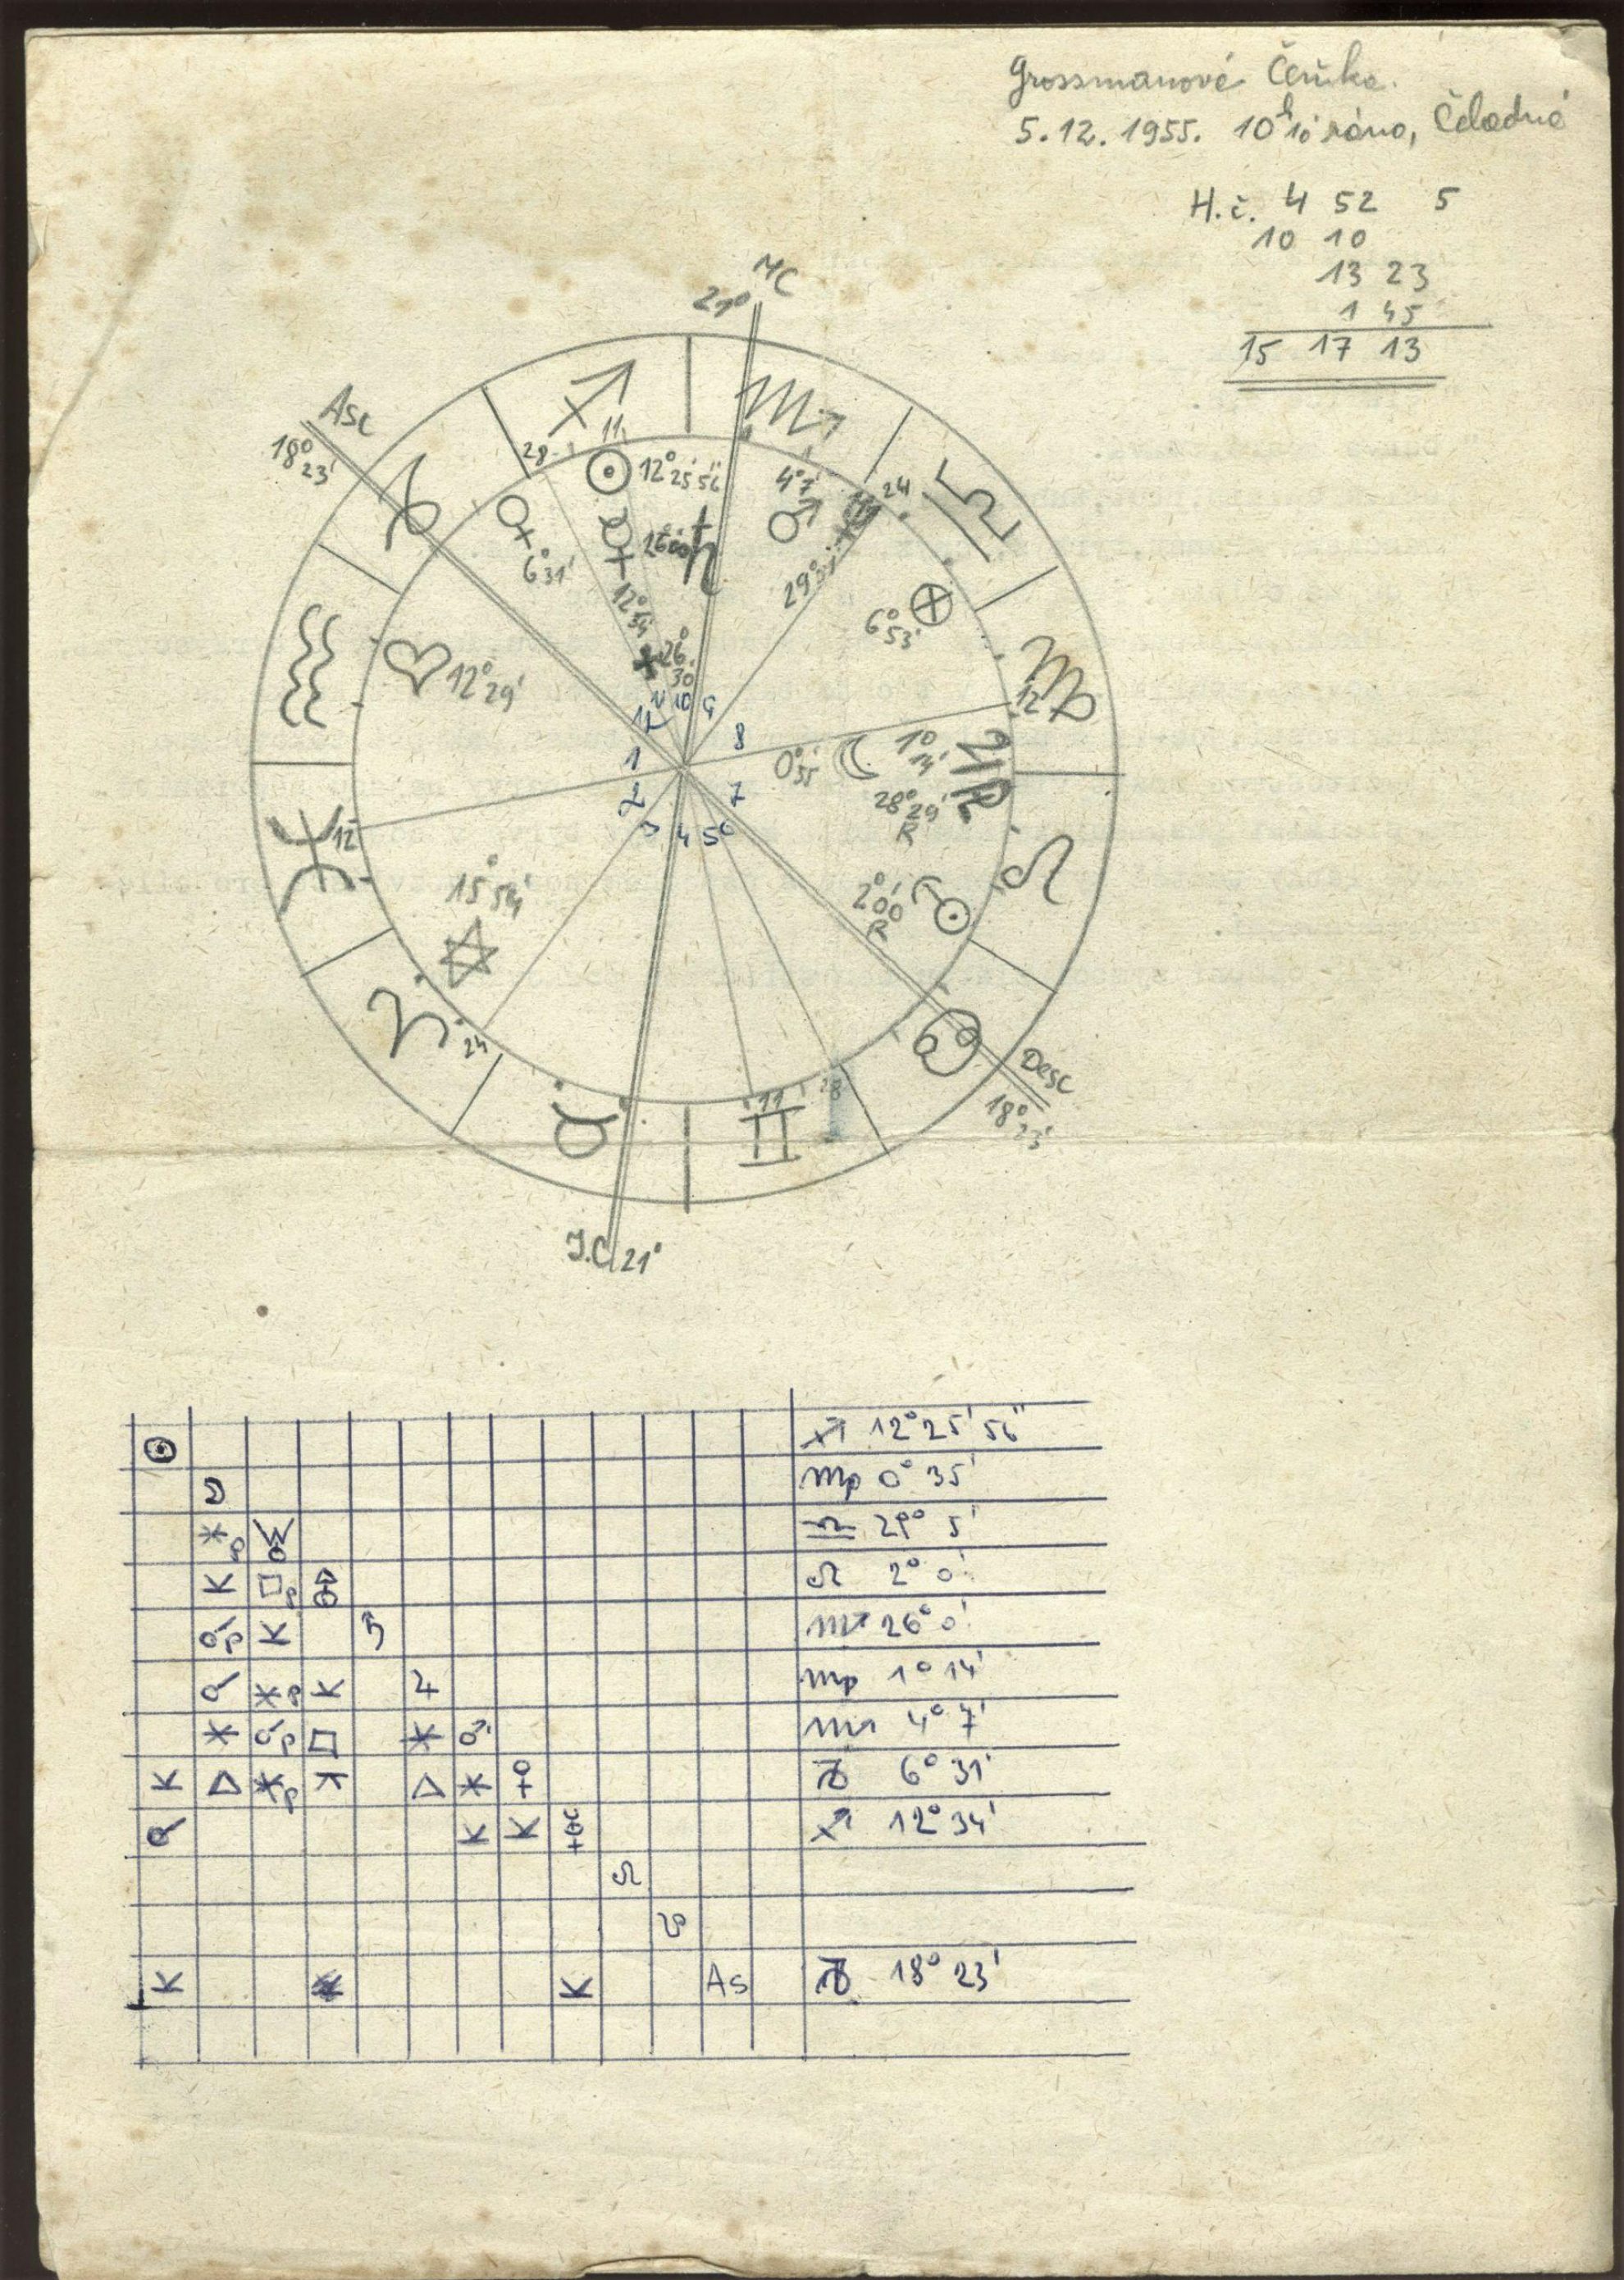 Grossmanové Čeňka.
5. 12. 1955. 10h 10' ráno, Čeladná
H. č. 4 52 5
10 10
13 23
1 45
15 17 13
MC
21°
Asc
18° 23'
♐
♏
♎
♍
♌
♋
♊
♉
♈
♓
♒
♑
28
11
☉ 12° 25' 56"
4° 7' ♂
24
♀ 6° 31'
☿ 12° 34'
♄
29°
6° 53' ⊗
26° 30'
12° 29'
12 11 10 9
8
1
2
3 4 5 6
7
12
0° 35' ☾ 1° 14' ♃
28° 29' R
2° 00' R
12
15° 54'
24
11
28
Desc
18° 23'
I.C. 21°
☉ ♐ 12° 25' 56"
☽ ♍ 0° 35'
♎ 29° 5'
♌ 2° 0'
♄ ♏ 26° 0'
♃ ♍ 1° 14'
♂ ♏ 4° 7'
♀ ♑ 6° 31'
☿ ♐ 12° 34'
☊
☋
As ♑ 18° 23'